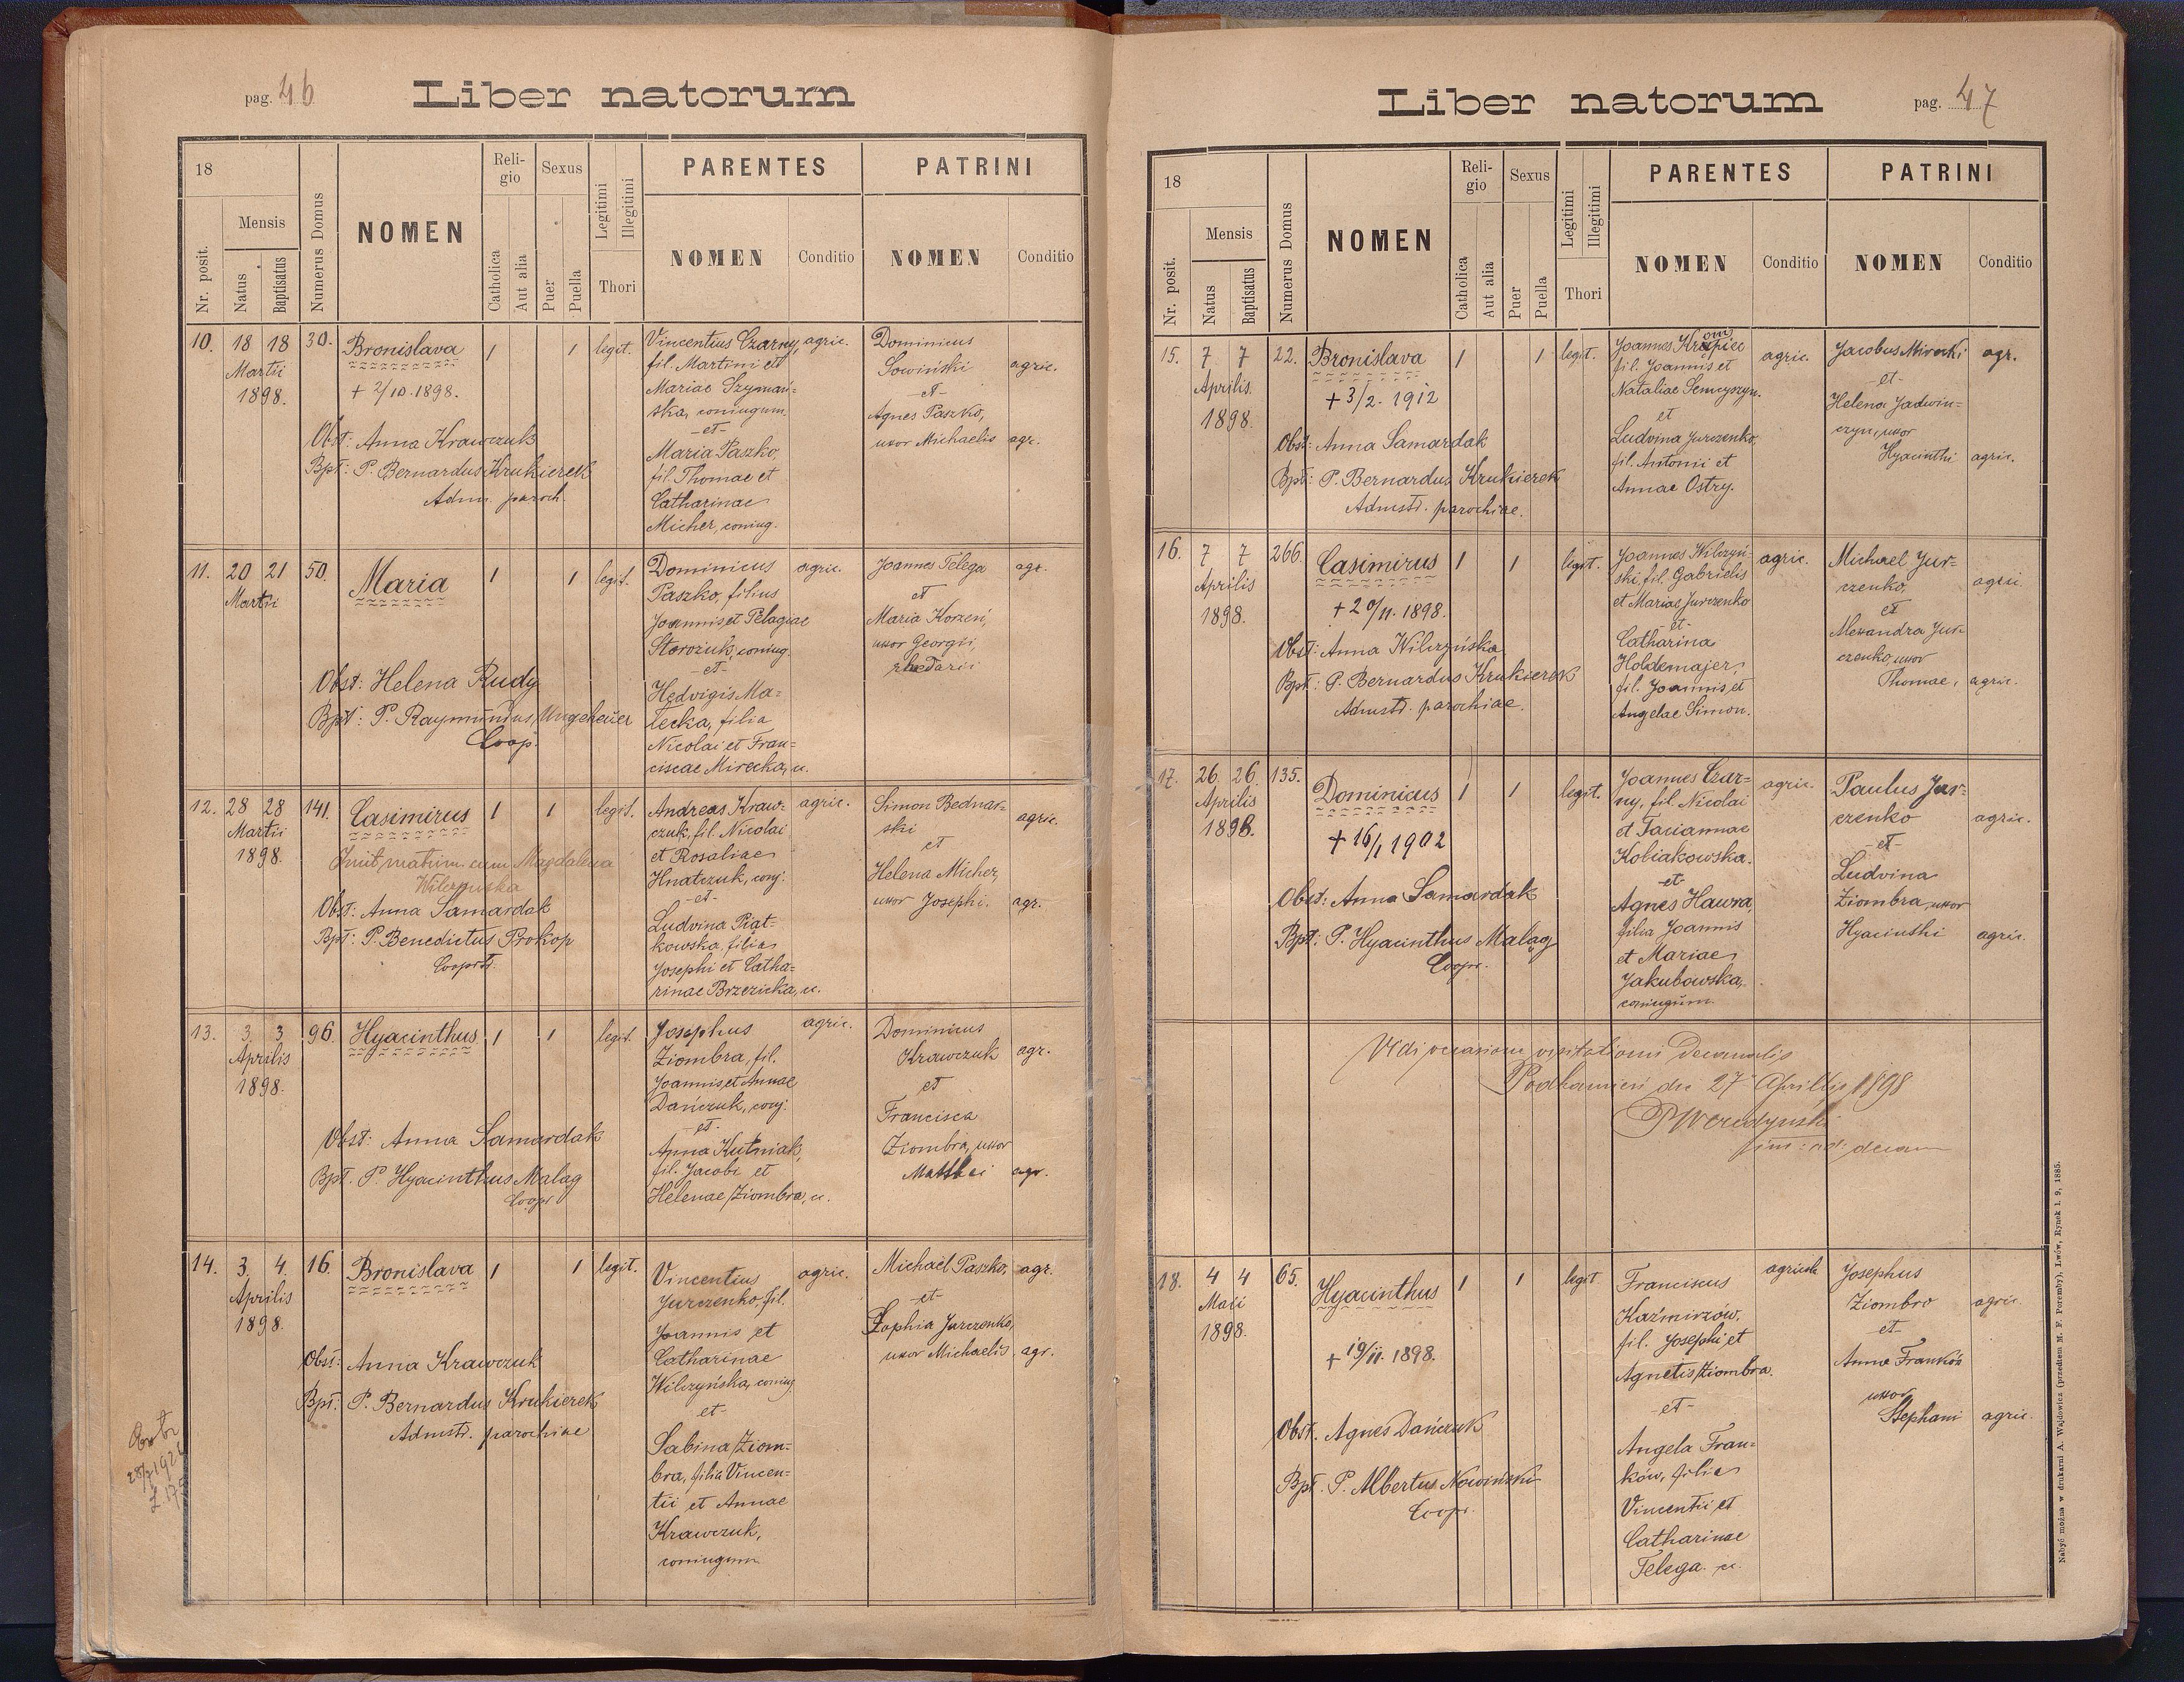 pag. 46
Liber natorum
18
Nr. posit.
Mensis
Natus
Baptisatus
Numerus Domus
NOMEN
Religio
Catholica
Aut alia
Sexus
Puer
Puella
Legitimi
Illegitimi
Thori
PARENTES
NOMEN
Conditio
PATRINI
NOMEN
Conditio
10. 18 18 30. Bronislava 1 1 legit.
Martii
1898.
+ 2/10. 1898.
Obst: Anna Krawczuk
Bpt: P. Bernardus Krukierek
Adm. paroch.
Vincentius Czarny, agric.
fil. Martini et
Mariae Szymań=
ska, coniugum.
-et-
Maria Paszko,
fil. Thomae et
Catharinae
Micher, coniug.
Dominicus
Sowiński agric.
-et-
Agnes Paszko,
uxor Michaelis agr.
11. 20 21 50. Maria 1 1 legit.
Martii
Obst: Helena Rudy
Bpt: P. Raymundus Ungeheuer
Coop.
Dominicus agric.
Paszko, filius
Joannis et Pelagiae
Storożuk, coniug.
-et-
Hedvigis Ma=
łecka, filia
Nicolai et Fran=
ciscae Mirecka, u.
Joannes Telega agr.
et
Maria Korzeń,
uxor Georgii,
rhedarii
12. 28 28 141. Casimirus 1 1 legit.
Martii
1898.
Iniit matrim. cum Magdalena
Wilczynska
Obst: Anna Samardak
Bpt: P. Benedictus Prokop
Cooprt.
Andreas Kraw- agric.
czuk, fil. Nicolai
et Rosaliae
Hnatczuk, conj.
-et-
Ludvina Piąt-
kowska, filia
Josephi et Catha=
rinae Brzezicka, u.
Simon Bednar-
ski agric.
et
Helena Micher,
uxor Josephi. agr.
13. 3. 3 96. Hyacinthus 1 1 legit.
Aprilis
1898.
Obst: Anna Samardak
Bpt. P. Hyacinthus Malag
Coopr.
Josephus agric.
Ziombra, fil.
Joannis et Annae
Dańczuk, conj.
-et-
Anna Kutniak,
fil. Jacobi et
Helenae Ziombra, u.
Dominicus
Krawczuk agr.
et
Francisca
Ziombra, uxor
Matthei agr.
14. 3. 4. 16. Bronislava 1 1 legit.
Aprilis
1898.
Obst: Anna Krawczuk
Bpt: P. Bernardus Krukierek
Admstr. parochiae
Vincentius agric.
Jurczenko, fil.
Joannis et
Catharinae
Wilczyńska, coniug.
et-
Sabina Ziom-
bra, filia Vincen-
tii et Annae
Krawczuk,
coniugum
Michael Paszko, agr.
-et
Sophia Jurczenko,
uxor Michaelis. agr.
Liber natorum
pag. 47
18
Nr. posit.
Mensis
Natus
Baptisatus
Numerus Domus
NOMEN
Religio
Catholica
Aut alia
Sexus
Puer
Puella
Legitimi
Illegitimi
Thori
PARENTES
NOMEN
Conditio
PATRINI
NOMEN
Conditio
15. 7 7 22. Bronislava 1 1 legit.
Aprilis
1898.
+ 3/2. 1912
Obst: Anna Samardak
Bpt: P. Bernardus Krukierek
Admstr. parochiae.
Joannes agric.
fil. Joannis et
Nataliae Semczyszyn.
et
Ludvina Jurczenko,
fil. Antonii et
Annae Ostry.
Jacobus Mirecki agr.
-et-
Helena Jadwin-
czyn, uxor
Hyacinthi agric.
16. 7 7 266. Casimirus 1 1 legit.
Aprilis
1898.
+ 20/11. 1898.
Obst: Anna Wilczyńska
Bpt: P. Bernardus Krukierek
Admstr. parochiae.
Joannes Wilczyń- agric.
ski, fil. Gabrielis
et Mariae Jurczenko
-et-
Catharina
Holdemajer,
fil. Joannis et
Angelae Simon.
Michael Jur-
czenko, agric.
et
Alexandra Jur-
czenko, uxor
Thomae, agric.
17. 26. 26 135. Dominicus 1 1 legit.
Aprilis
1898.
+ 16/1 1902
Obst: Anna Samardak
Bpt: P. Hyacinthus Malag
Coopr.
Joannes Czar- agric.
ny, fil. Nicolai
et Taciannae
Kobiakowska.
-et-
Agnes Hawra,
filia Joannis
et Mariae
Jakubowska,
coniugum.
Paulus Jur-
czenko agric.
-et-
Ludvina
Ziombra, uxor
Hyacinthi agric.
Vidi occasione visitationis Decanalis
Podkamień die 27 Aprilis 1898
18. 4 4 65. Hyacinthus 1 1 legit.
Maii
1898.
+ 19/11. 1898.
Obst. Agnes Dańczuk
Bpt. P. Albertus Nowiński
Coopr.
Franciscus
Kaźmirzów,
fil. Josephi et
Agnetis Ziombra.
-et-
Angela Fran=
ków, filia
Vincentii et
Catharinae
Telega. u.
Josephus
Ziombro agric.
et
Anna Franków
uxor
Stephani agric.
Nabyć można w drukarni A. Wajdowicz (przedtem M. F. Poremby), Lwów, Rynek l. 9, 1885.